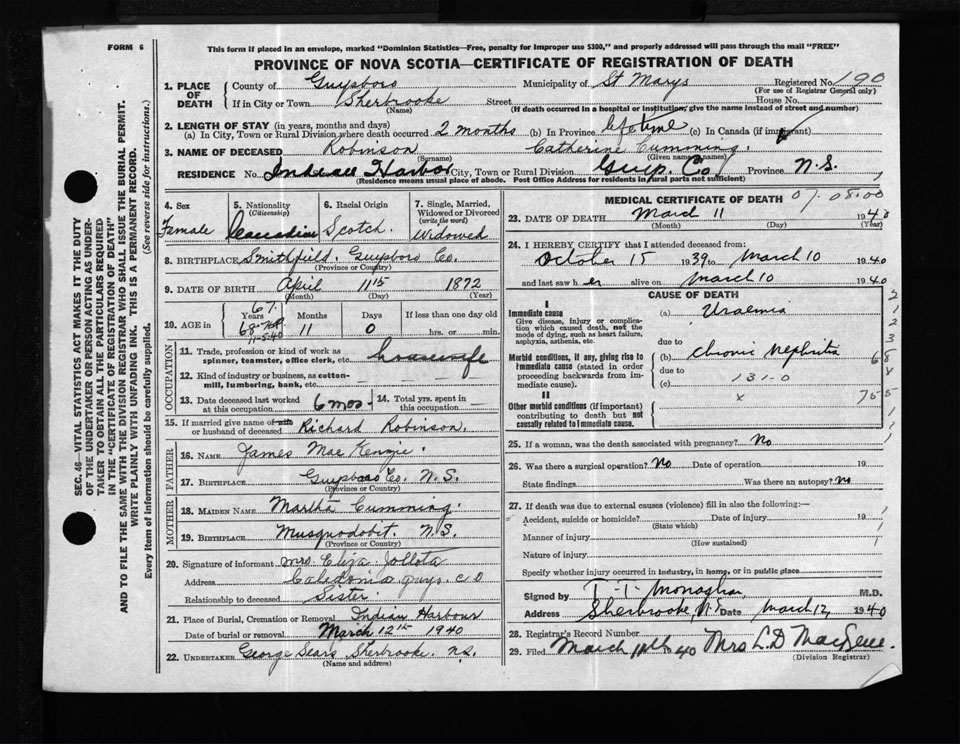 FORM 6
This form if placed in an envelope, marked "Dominion Statistics—Free, penalty for improper use $300," and properly addressed will pass through the mail "FREE"
PROVINCE OF NOVA SCOTIA—CERTIFICATE OF REGISTRATION OF DEATH
1. PLACE OF DEATH
County of Guysboro Municipality of St Marys Registered No. 190
(For use of Registrar General only)
If in City or Town Sherbrooke Street House No.
(Name) (If death occurred in a hospital or institution, give the name instead of street and number)
2. LENGTH OF STAY (in years, months and days)
(a) In City, Town or Rural Division where death occurred 2 months (b) In Province lifetime (c) In Canada (if immigrant)
3. NAME OF DECEASED Robinson Catherine Cumming.
(Surname) (Given name or names)
RESIDENCE No. Indian Harbor City, Town or Rural Division Guy. Co Province N.S.
(Residence means usual place of abode. Post Office Address for residents in rural parts not sufficient)
4. Sex
Female
5. Nationality
(Citizenship)
Canadian
6. Racial Origin
Scotch.
7. Single, Married, Widowed or Divorced
(write the word)
Widowed
8. BIRTHPLACE Smithfield. Guysboro Co.
(Province or Country)
9. DATE OF BIRTH April 11th 1872
(Month) (Day) (Year)
10. AGE in
67
Years
68
11-5-40
Months
11
Days
0
If less than one day old
hrs. or min.
OCCUPATION
11. Trade, profession or kind of work as spinner, teamster, office clerk, etc. housewife
12. Kind of industry or business, as cotton-mill, lumbering, bank, etc.
13. Date deceased last worked at this occupation 6 mos -
14. Total yrs. spent in this occupation
15. If married give name of wife or husband of deceased Richard Robinson.
FATHER
16. NAME James Mac Kenzie.
17. BIRTHPLACE Guysboro Co. N.S.
(Province or Country)
MOTHER
18. MAIDEN NAME Martha Cumming.
19. BIRTHPLACE Musquodobit. N.S.
(Province or Country)
20. Signature of informant Mrs. Eliza
Address Caledonia guys. co
Relationship to deceased Sister.
21. Place of Burial, Cremation or Removal Indian Harbour
Date of burial or removal March 12th 1940
22. UNDERTAKER George Sears Sherbrooke. N.S.
(Name and address)
MEDICAL CERTIFICATE OF DEATH 01.08.00
23. DATE OF DEATH March 11 1940
(Month) (Day) (Year)
24. I HEREBY CERTIFY that I attended deceased from:
October 15 1939 to March 10 1940
and last saw her alive on March 10 1940
CAUSE OF DEATH
I
Immediate cause
Give disease, injury or complication which caused death, not the mode of dying, such as heart failure, asphyxia, asthenia, etc.
(a) Uraemia
due to
Morbid conditions, if any, giving rise to immediate cause (stated in order proceeding backwards from immediate cause).
(b) chronic nephritis
due to
(c) 131-0
II
Other morbid conditions (if important) contributing to death but not causally related to immediate cause.
x
25. If a woman, was the death associated with pregnancy? No
26. Was there a surgical operation? No Date of operation 19
State findings Was there an autopsy? No
27. If death was due to external causes (violence) fill in also the following:—
Accident, suicide or homicide? Date of injury 19
(State which)
Manner of injury
(How sustained)
Nature of injury
Specify whether injury occurred in industry, in home, or in public place
Signed by T. T. Monaghan M.D.
Address Sherbrooke, N.S. Date March 12, 1940
28. Registrar's Record Number
29. Filed March 40 Mrs L.D
(Division Registrar)
SEC. 46—VITAL STATISTICS ACT MAKES IT THE DUTY
OF THE UNDERTAKER OR PERSON ACTING AS UNDER-
TAKER TO OBTAIN ALL THE PARTICULARS REQUIRED
IN THE "CERTIFICATE OF REGISTRATION OF DEATH"
AND TO FILE THE SAME WITH THE DIVISION REGISTRAR WHO SHALL ISSUE THE BURIAL PERMIT.
WRITE PLAINLY WITH UNFADING INK. THIS IS A PERMANENT RECORD.
Every item of information should be carefully supplied. (See reverse side for instructions.)